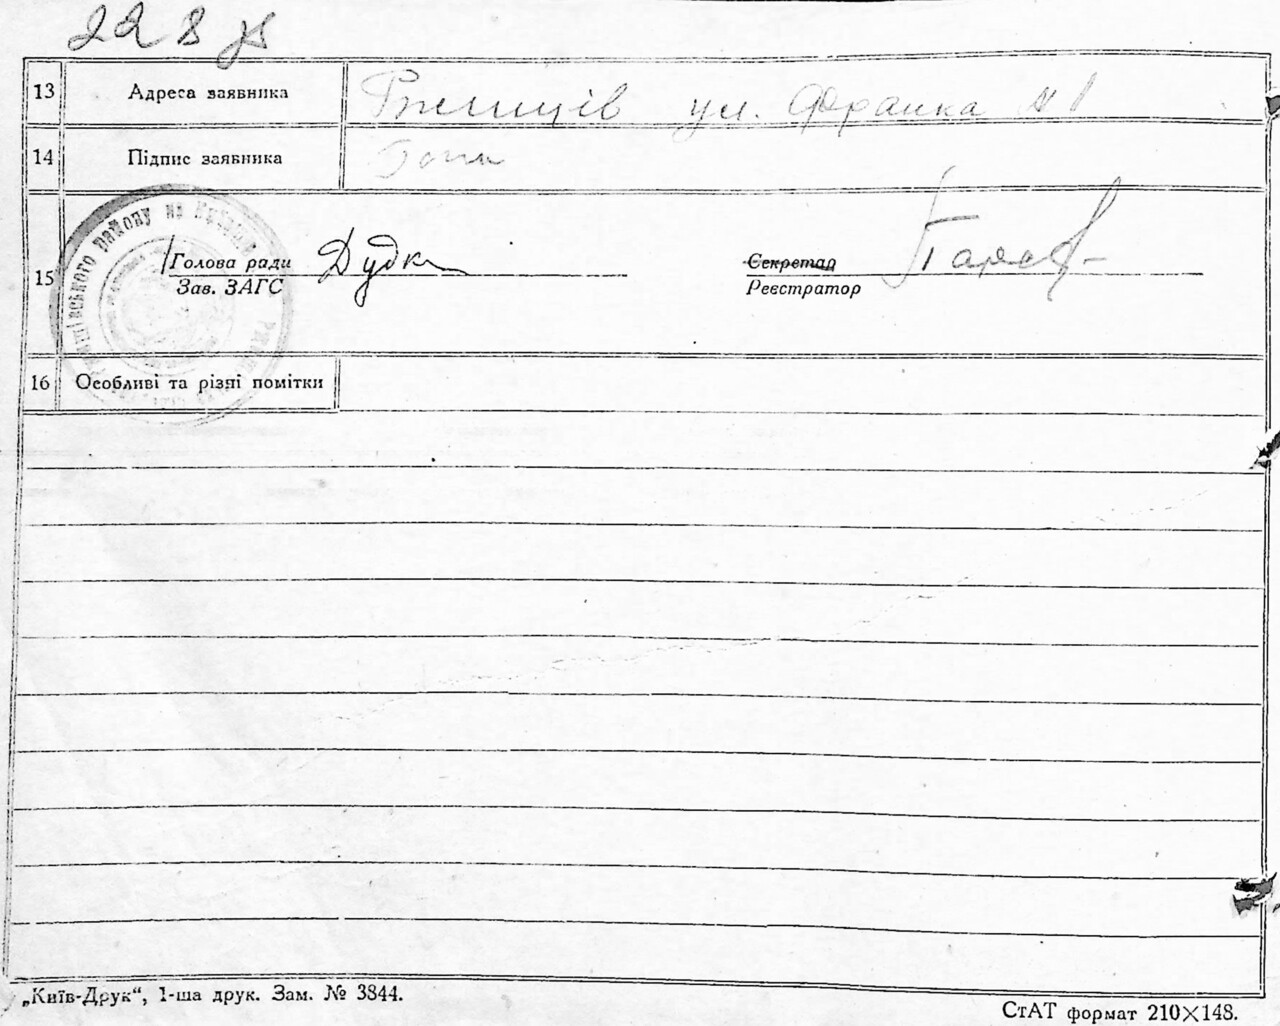 228
13 Адреса заявника Ржищів ул. Франка № 1
14 Підпис заявника
району на Київщ
Голова ради Дудк Секретар
15 Зав. ЗАГС Реєстратор
16 Особливі та різні помітки
„Київ-Друк“, 1-ша друк. Зам. № 3844.
СтАТ формат 210×148.